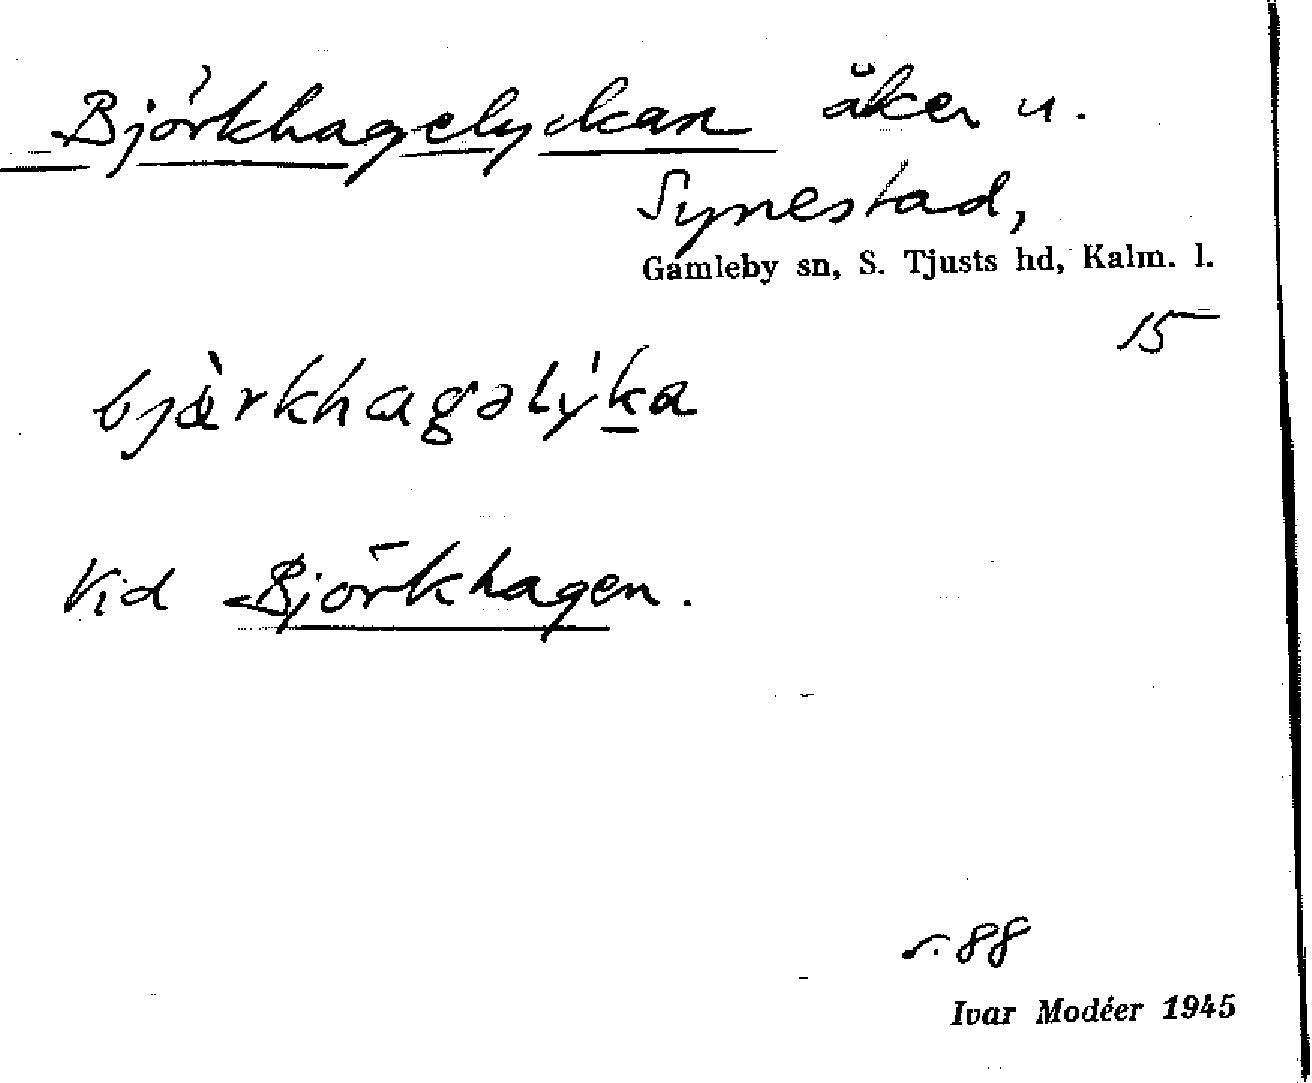 Björkhagelyckan åker u.
Synestad,
Gamleby sn, S. Tjusts hd, Kalm. l.
15
bjàrkhagəlý̍ka
Vid Björkhagen.
s. 88
Ivar Modéer 1945